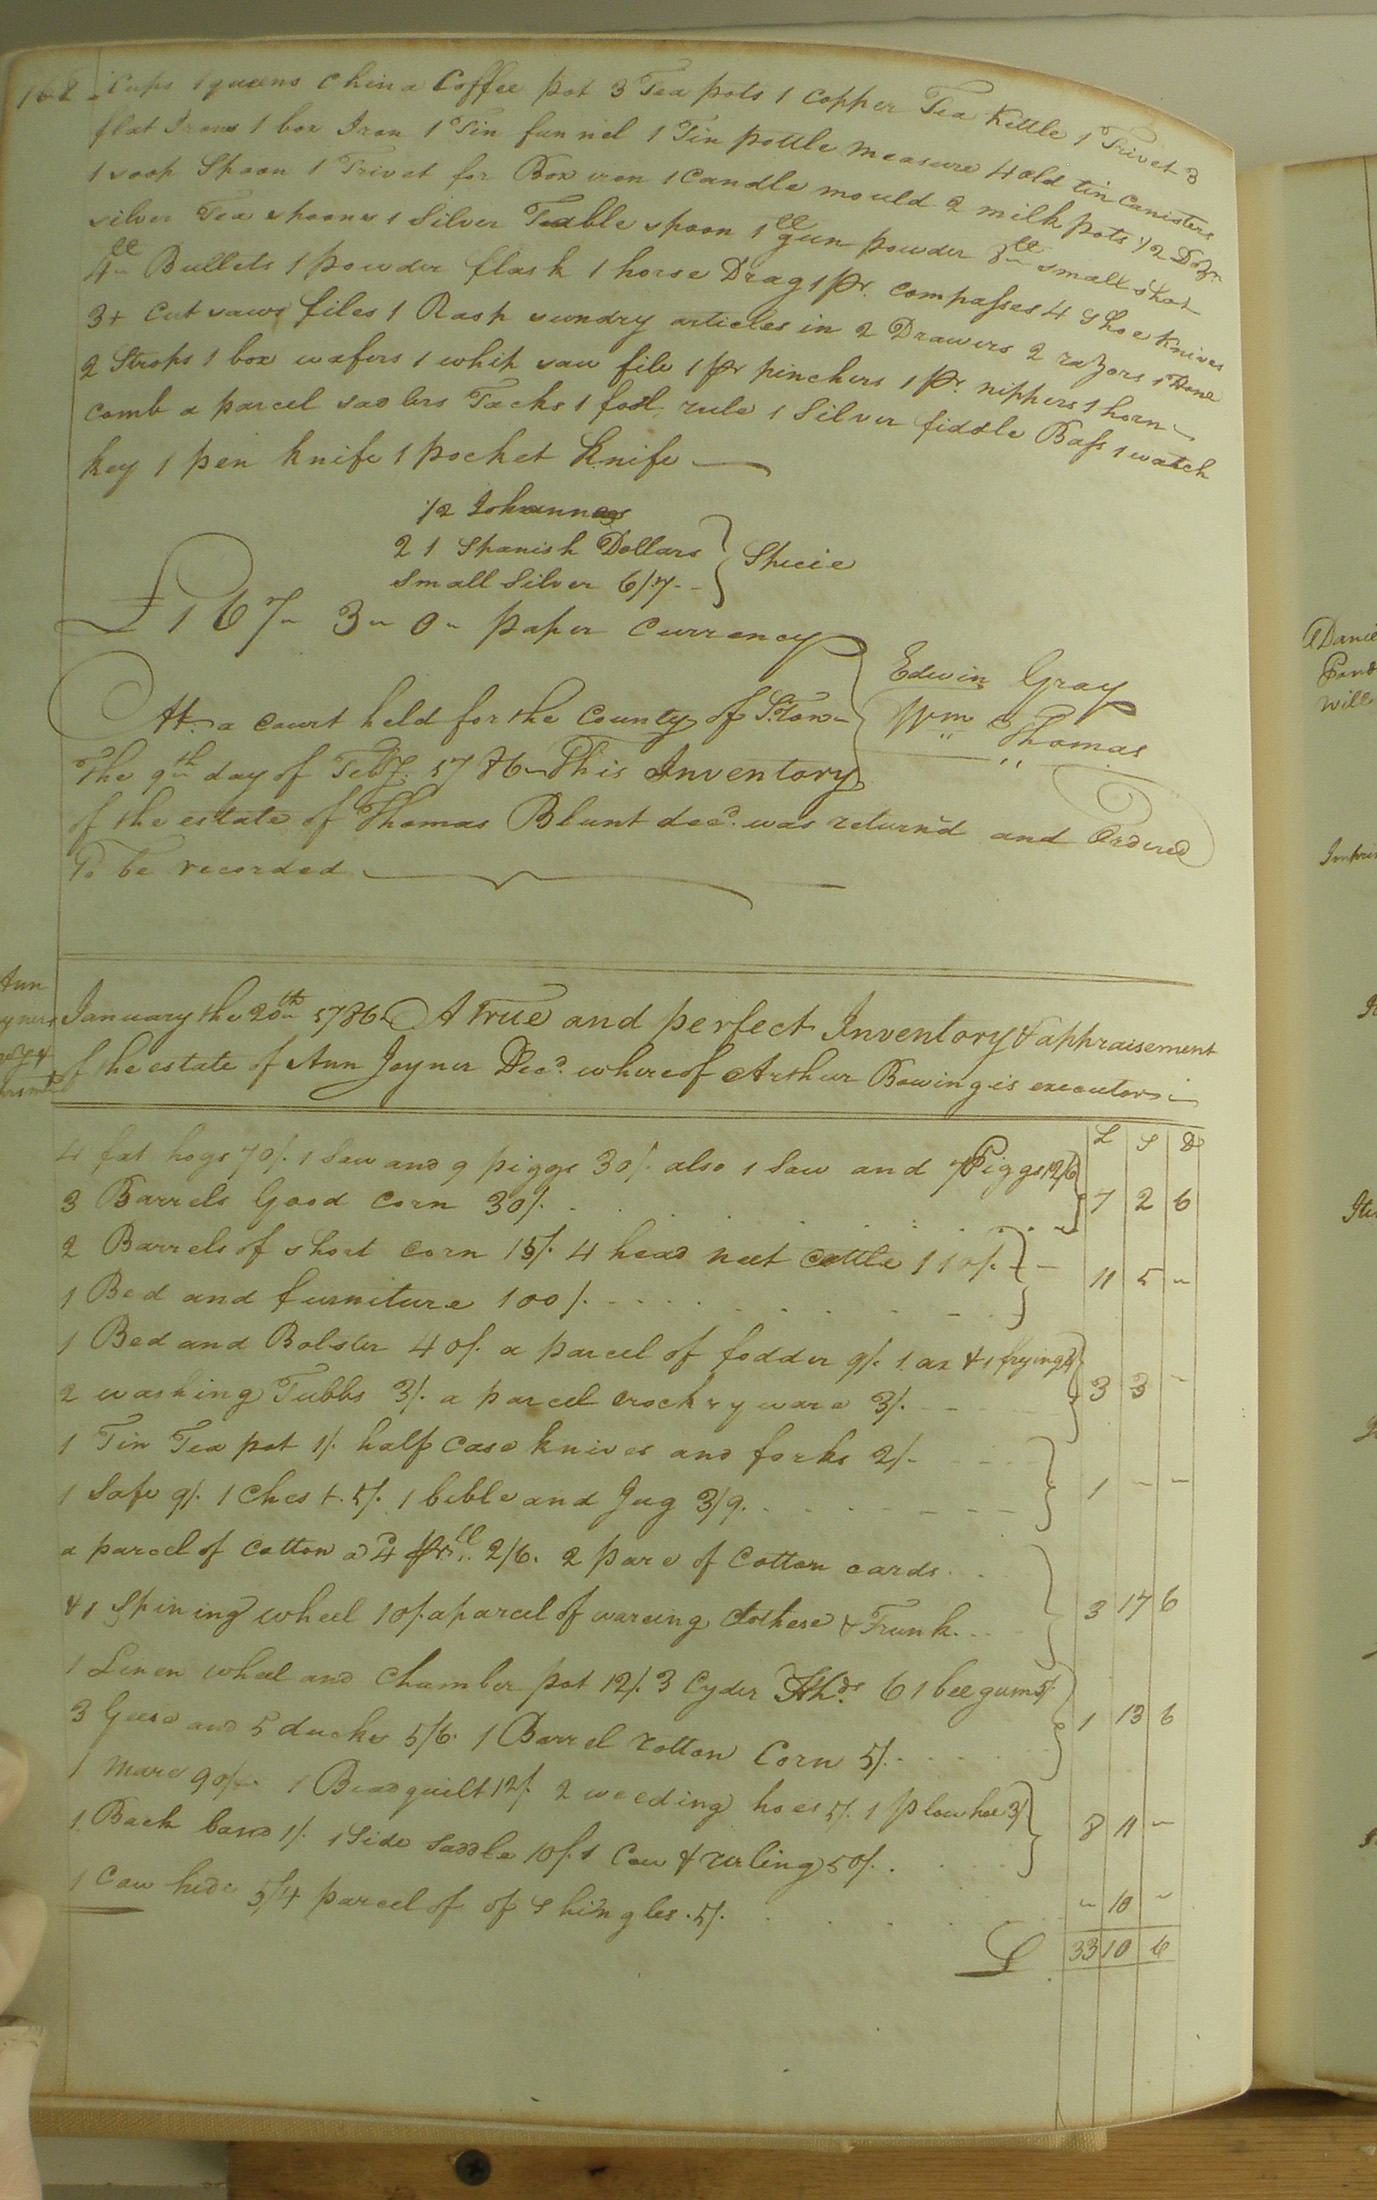 168 Cups 1 queens China Coffee pot 3 Tea pots 1 Copper Tea Kettle 1 Trivet 3
flat Irons 1 box Iron 1 Tin funnel 1 Tin pottle measure 4 old tin Canisters
1 soop Spoon 1 Trivet for Box iron 1 Candle mould 2 milk pots 1/2 Dozn.
silver Tea spoons 1 Silver Table spoon 1 ll gun powder 3 ll small shot
4 ll Bullets 1 powder flask 1 horse Drag 1 Pr. compasses 4 Shoe Knives
3 + Cut saws files 1 Rasp sundry articles in 2 Drawers 2 razors 1 Hone
2 Strops 1 box wafers 1 whip saw file 1 pr pinchers 1 pr. nippers 1 horn
comb a parcel sadlers Tacks 1 foot rule 1 Silver fiddle Bass 1 watch
key 1 pen knife 1 pocket knife
1/2 Johannas
21 Spanish Dollars
Small Silver 6/7
Specie
£167 „ 3 „ 0 „ paper Currency
Edwin Gray
Wm Thomas
At a Court held for the County of S:Ton
The 9th day of Feby. 1786 This Inventory
of the estate of Thomas Blunt decd. was return'd and Ordered
To be recorded
Ann
January the 20th 1786 A true and perfect Inventory & appraisement
of the estate of Ann Joyner Decd. whereof Arthur Bowing is executor
£ S D
4 fat hogs 70/. 1 Saw and 9 piggs 30/. also 1 Saw and 7 Piggs 12/6
3 Barrels Good Corn 30/. 7 2 6
2 Barrels of short corn 15/. 4 head neet cattle 110/.
1 Bed and furniture 100/. 11 5 „
1 Bed and Bolster 40/. a parcel of fodder 9/. 1 ax & 1 frying
2 washing Tubbs 3/. a parcel crockry ware 3/. 3 3 „
1 Tin Tea pot 1/. half case knives and forks 2/.
1 Safe 9/. 1 Chest. 5/. 1 bible and Jug 3/9. 1 — —
a parcel of Cotton 2/6. 2 pare of Cotton cards
& 1 Spining wheel 10/. a parcel of wareing Clothese & Trunk 3 17 6
1 Linen wheel and Chamber pot 12/. 3 Cyder Hhds. 6 1 bee gum 5/
3 Geese and 5 ducks 5/6. 1 Barrel rotton Corn 5/. 1 13 6
1 mare 90/. 1 Beadquilt 12/. 2 weeding hoes 5/. 1 plow hoe 3/
1 Back band 1/. 1 Side Saddle 10/. 1 Cow & yerling 50/. 8 11 „
1 Cow hide 5/4 parcel of of Shingles. 5/. „ 10 „
£ 33 10 6